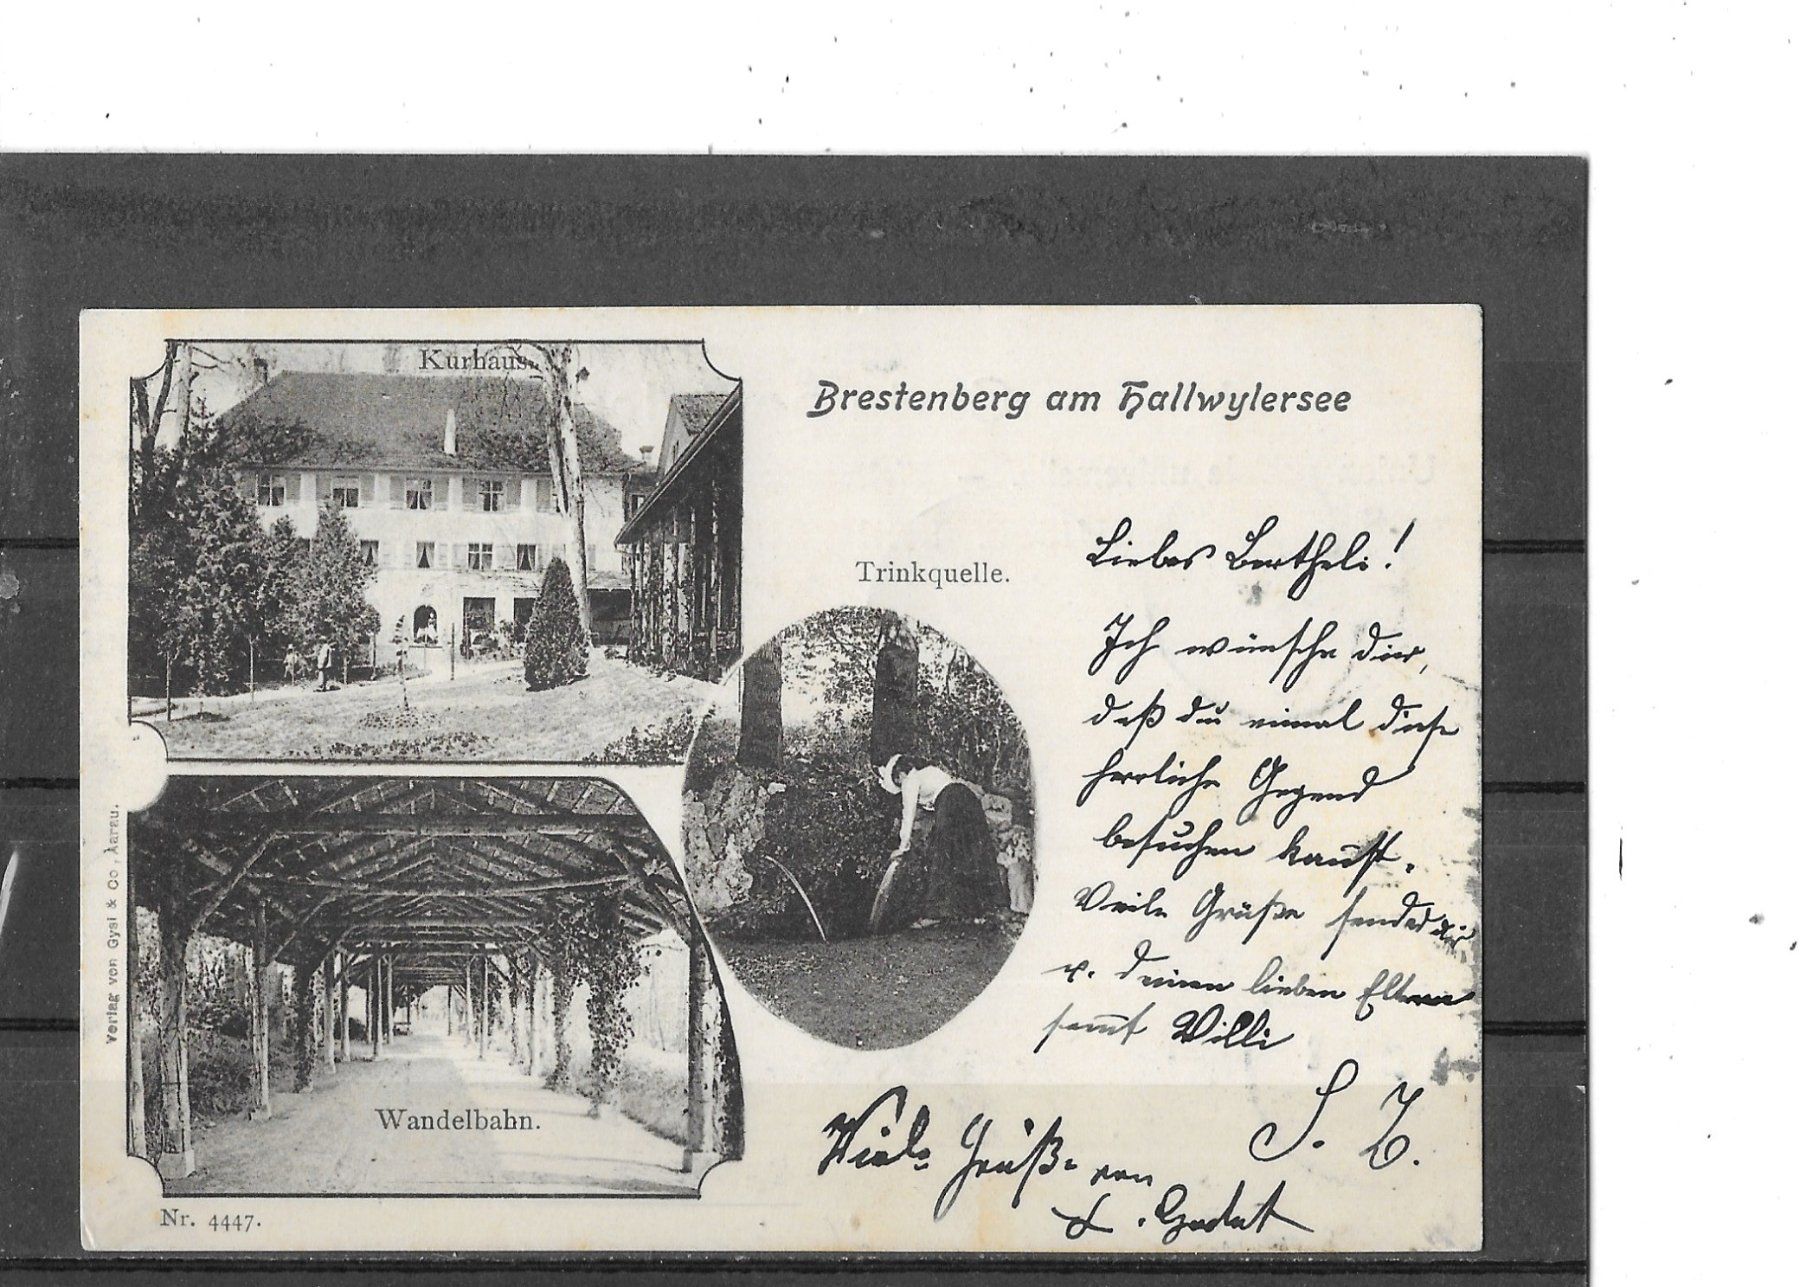 Kurhaus.
Brestenberg am Hallwylersee
Trinkquelle.
Liebes Bertheli!
Ich wünsche dir,
daß du einmal diese
herrliche Gegend
besuchen kannst.
Viele Grüße sendet dir
u. deinen lieben Eltern
samt Willi
S. Z.
Viele Grüße von
Wandelbahn.
Nr. 4447.
Verlag von Gysi & Co, Aarau.